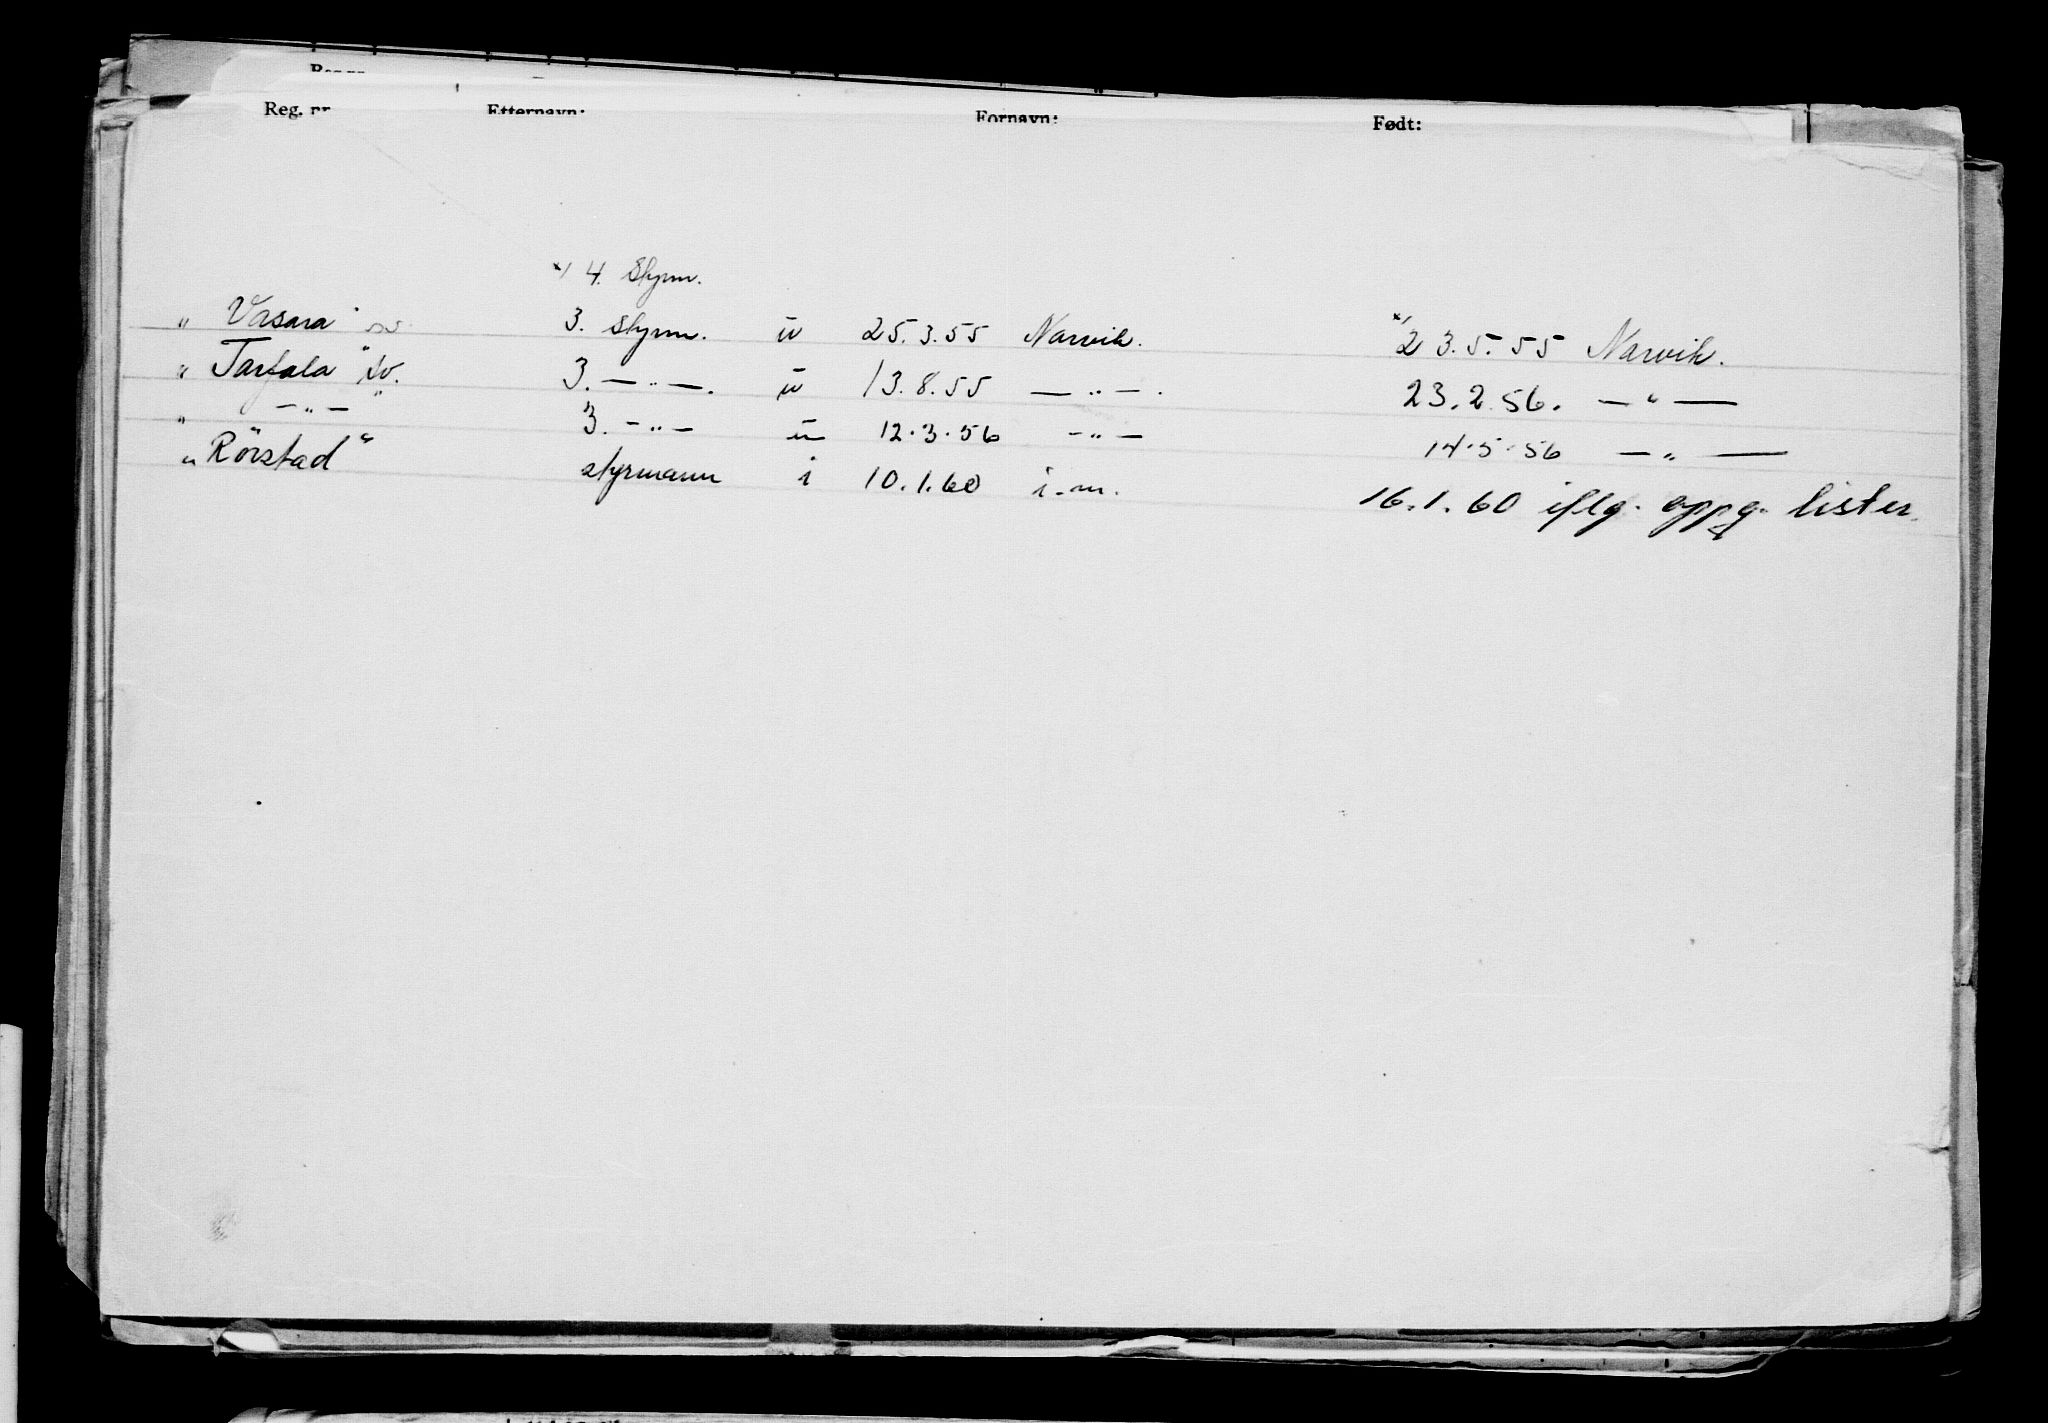 Reg. nr Etternavn: Fornavn: Født:
x/ 4. Styrm.
"Vasara" sv. 3. styrm. u 25.3.55 Narvik. x/ 23.5.55 Narvik.
"Tarfala" sv. 3. — " —. u 13.8.55 — " —. 23.2.56. — " —
" — " — " 3. — " — u 12.3.56 — " — 14.5.56 — " —
"Rörstad" styrmann i 10.1.60 i.m. 16.1.60 iflg. oppg. lister.